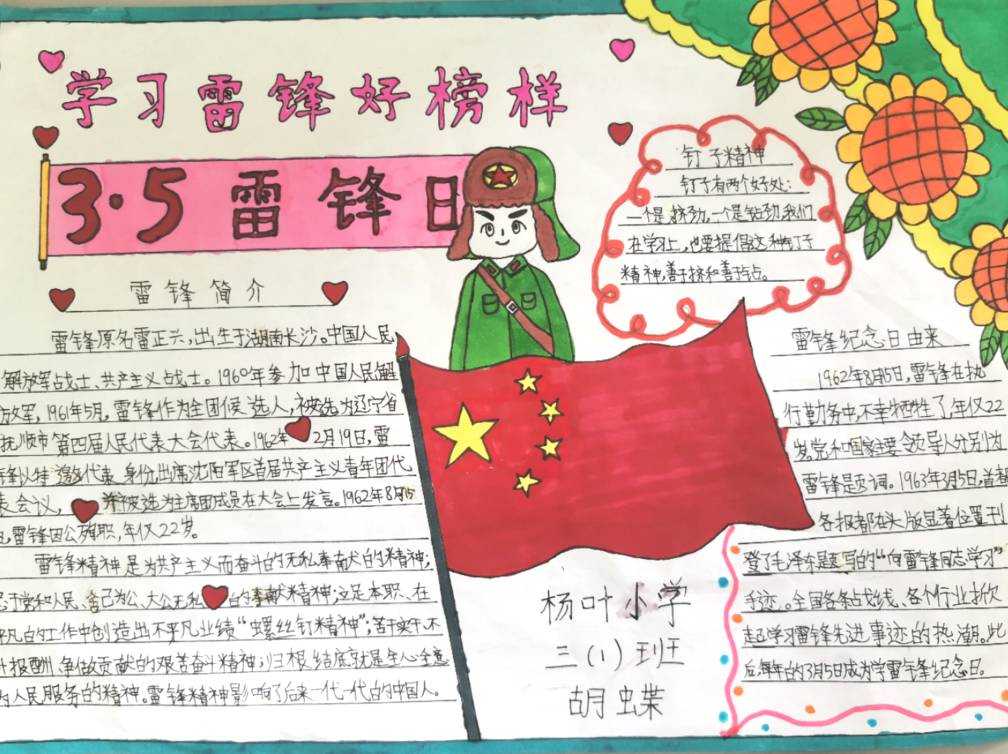 学习雷锋好榜样
3·5雷锋日
雷锋简介
雷锋原名雷正兴,出生于湖南长沙。中国人民
解放军战士、共产主义战士。1960年参加中国人民解
放军,1961年5月,雷锋作为全团候选人,被选为辽宁省
抚顺市第四届人民代表大会代表。1962年2月19日,雷
锋以特邀代表身份出席沈阳军区首届共产主义青年团代
表会议,并被选为主席团成员在大会上发言。1962年8月15
日,雷锋因公殉职,年仅22岁。
雷锋精神是为共产主义而奋斗的无私奉献的精神;
忠于党和人民、舍己为公、大公无私的奉献精神;立足本职、在
平凡的工作中创造出不平凡业绩“螺丝钉精神”;苦干实干、不
计报酬、争做贡献的艰苦奋斗精神;归根结底就是全心全意
为人民服务的精神。雷锋精神影响了后来一代一代的中国人。
钉子精神
钉子有两个好处:
一个是挤劲,一个是钻劲,我们
在学习上,也要提倡这种钉子
精神,善于挤和善于钻。
雷锋纪念日由来
1962年8月15日,雷锋在执
行勤务中不幸牺牲了年仅22
发党和国家主要领导人分别为
雷锋题词。1963年3月5日,首都
各报都在头版显著位置刊
登了毛泽东题写的“向雷锋同志学习”
手迹。全国各条战线、各个行业掀
起了学习雷锋先进事迹的热潮。此
后,每年的3月5日成为学雷锋纪念日。
杨叶小学
三(1)班
胡蝶